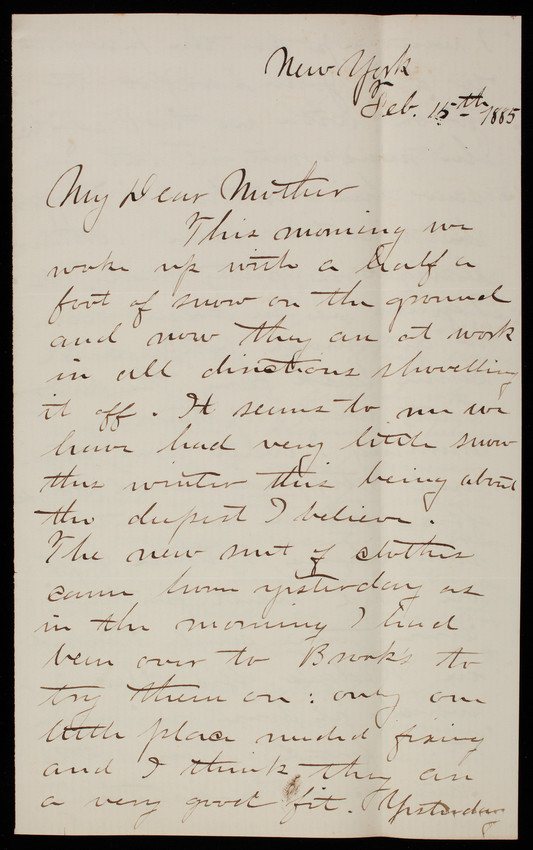 New York
Feb. 15th 1885
My Dear Mother
This morning we
woke up with a half a
foot of snow on the ground
and now they are at work
in all directions shovelling
it off. It seems to me we
have had very little snow
this winter this being about
the deepest I believe.
The new suit of clothes
came home yesterday as
in the morning I had
been over to Brooks to
try them on: only one
little place needed fixing
and I think they are
a very good fit. Yesterday